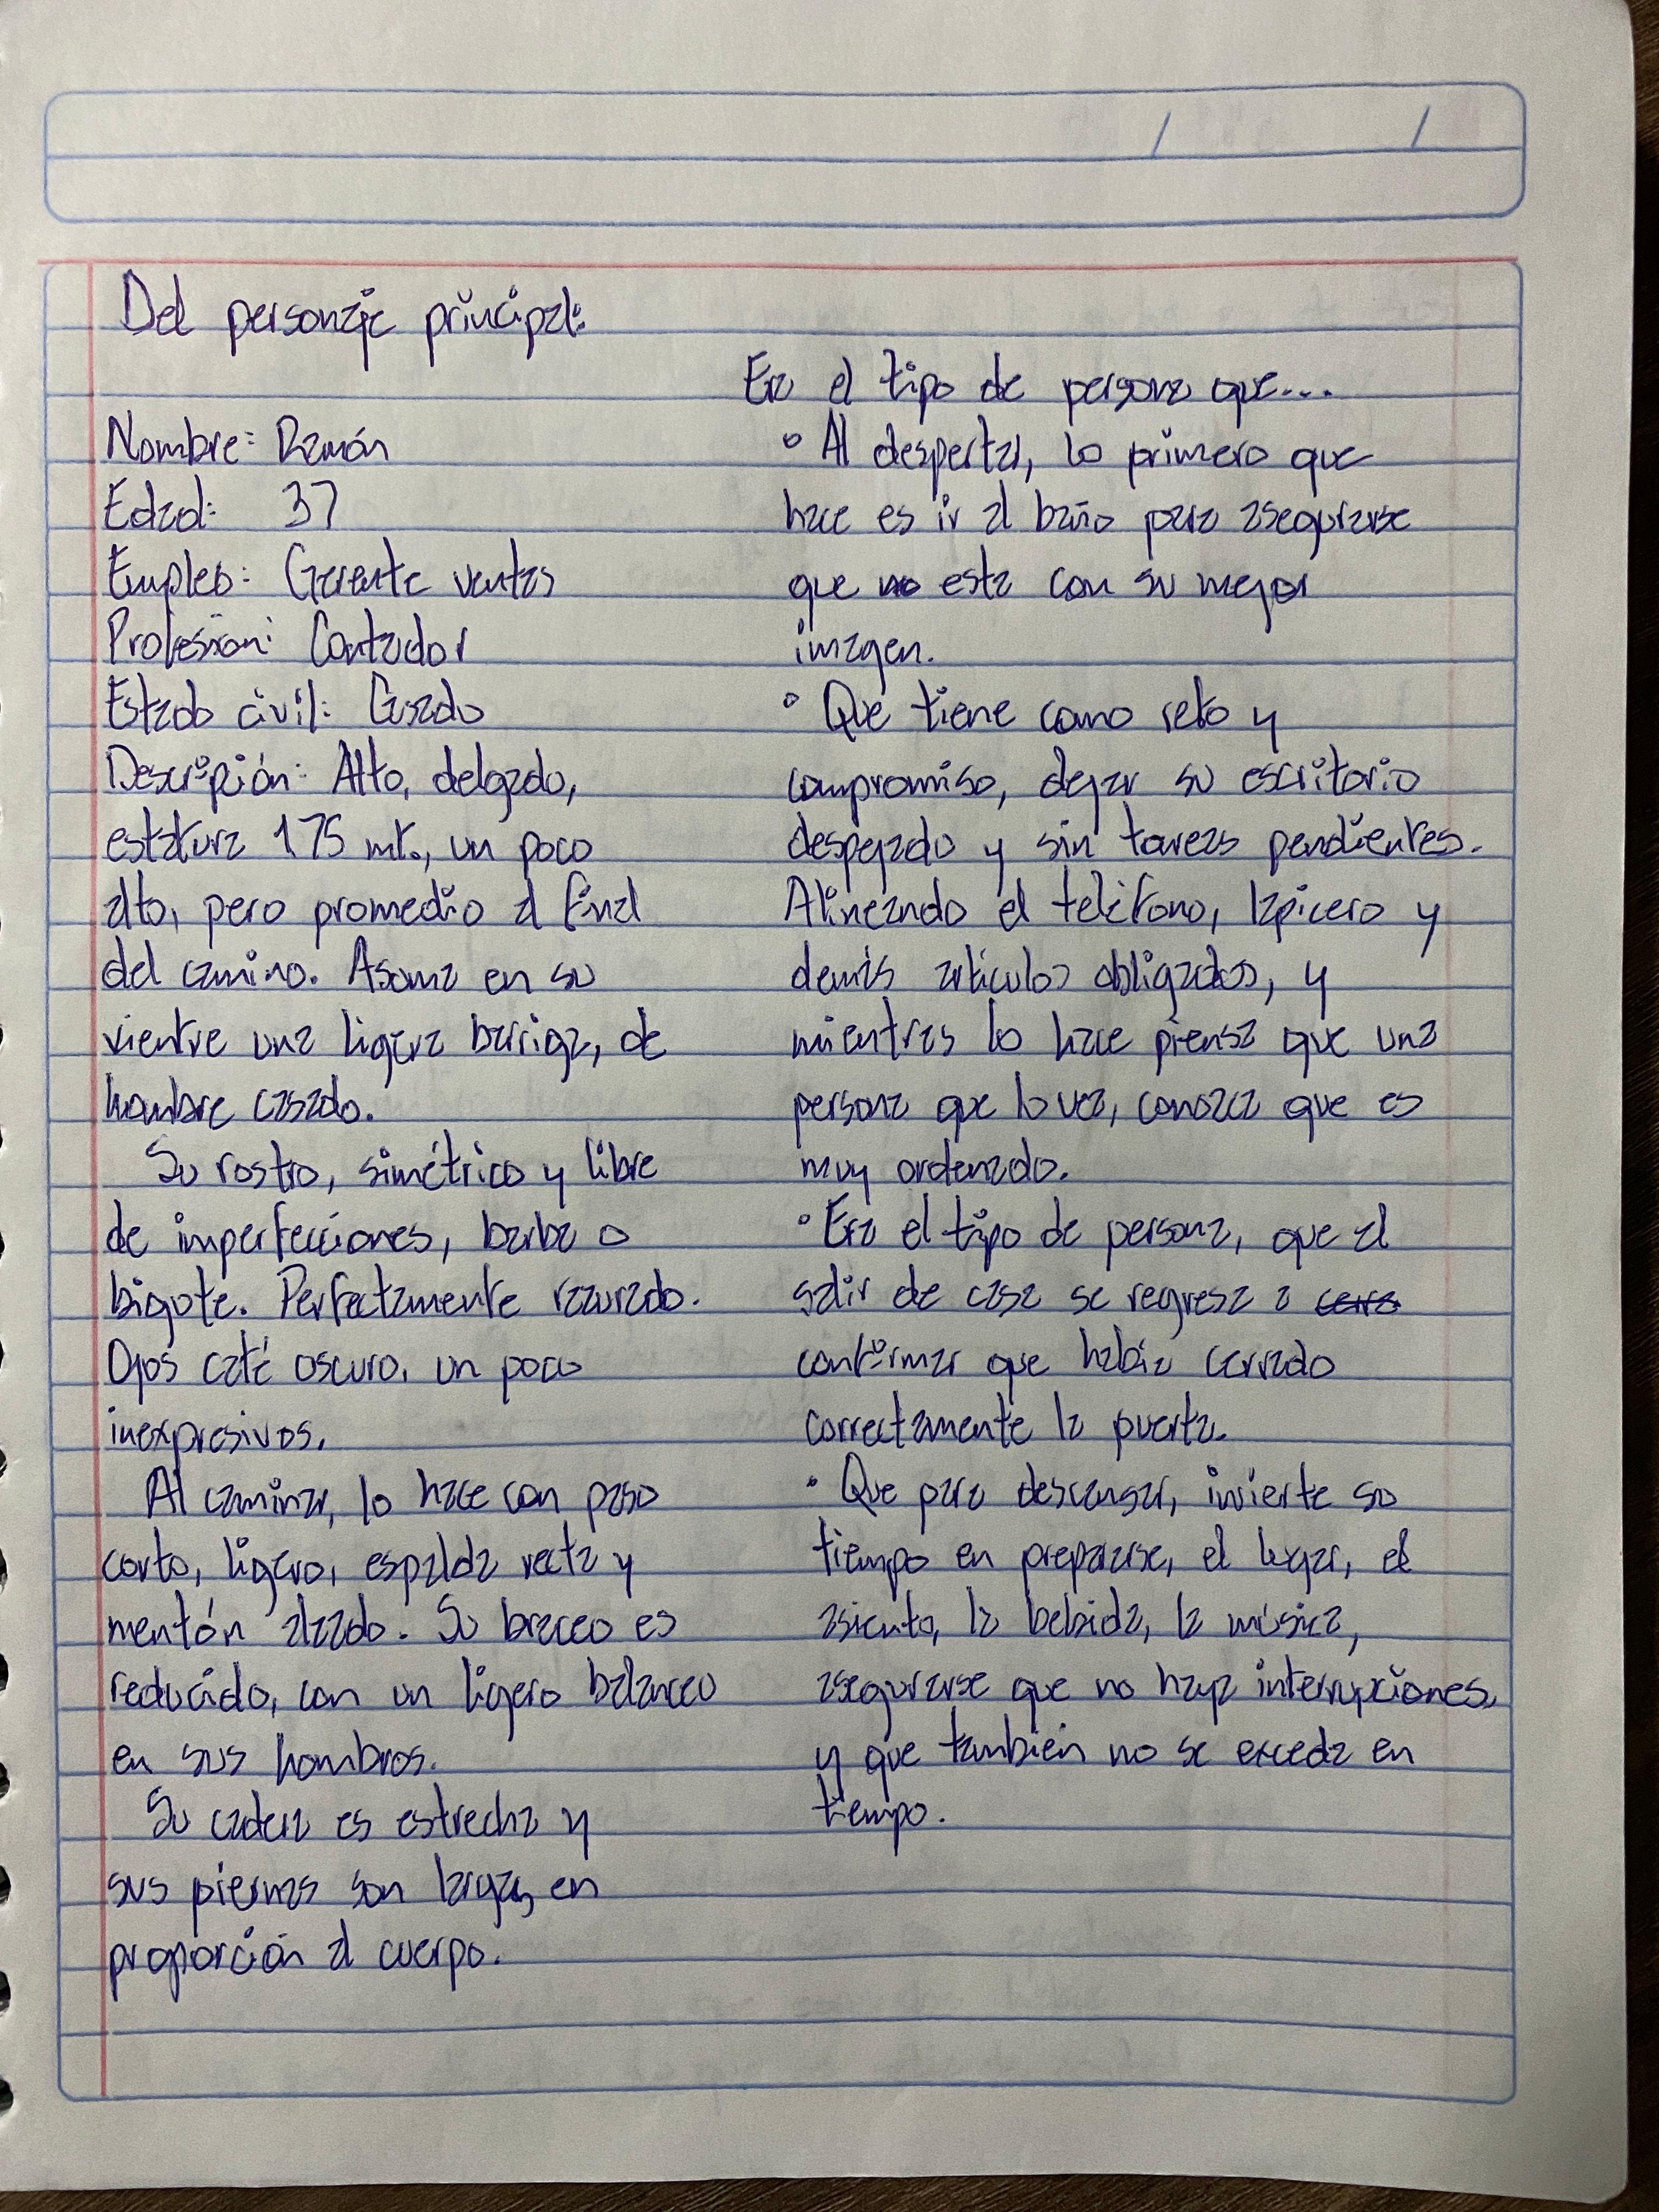 Del personaje principal:
Nombre: Ramón
Edad: 37
Empleo: Gerente ventas
Profesión: Contador
Estado civil: Casado
Descripión: Alto, delgado,
estatura 1.75 mt., un poco
alto, pero promedio al final
del camino. Asoma en su
vientre una ligera barriga, de
hombre casado.
Su rostro, simétrico y libre
de imperfecciones, barba o
bigote. Perfectamente razurado.
Ojos café oscuro, un poco
inexpresivos.
Al caminar, lo hace con paso
corto, ligero, espalda recta y
mentón alzado. Su braceo es
reducido, con un ligero balanceo
en sus hombros.
Su cadera es estrecha y
sus piernas son largas, en
proporción al cuerpo.
Era el tipo de persona que...
° Al despertar, lo primero que
hace es ir al baño para asegurarse
que no esta con su mejor
imagen.
° Que tiene como reto y
compromiso, dejar su escritorio
despejado y sin tareas pendientes.
Alineando el teléfono, lapicero y
demás artículos obligados, y
mientras lo hace piensa que una
persona que lo vea, conozca que es
muy ordenado.
° Era el tipo de persona, que al
salir de casa se regresa a
confirmar que había cerrado
correctamente la puerta.
° Que para descansar, invierte su
tiempo en prepararse, el lugar, el
asiento, la bebida, la música,
asegurarse que no haya interrupciones,
y que también no se exceda en
tiempo.